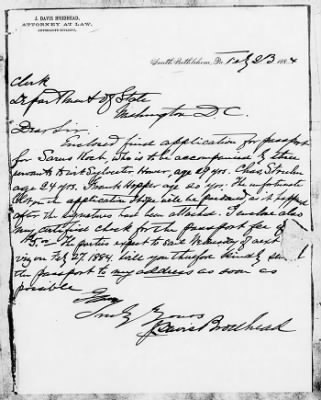 J. DAVIS BRODHEAD,
ATTORNEY AT LAW,
South Bethlehem, Pa. Feby 23 1884
Clerk
Department of State
Washington D.C.
Dear Sir:
Enclosed find application for passport
for Sarus who is to be accompanied by three
servants to wit Sylvester age 29 yrs. Chas.
age 24 yrs. Frank Hopper age 20 yrs. The unfortunate
blot on the application I hope will be pardoned as it happened
after the signatures had been attached. I enclose also
my certified check for the passport fee of
$5.00 The parties expect to sail Wednesday of next
viz on Feby 27, 1884. Will you therefore kindly send
the passport to my address as soon as
possible
Very
Truly Yours
J Davis Brodhead